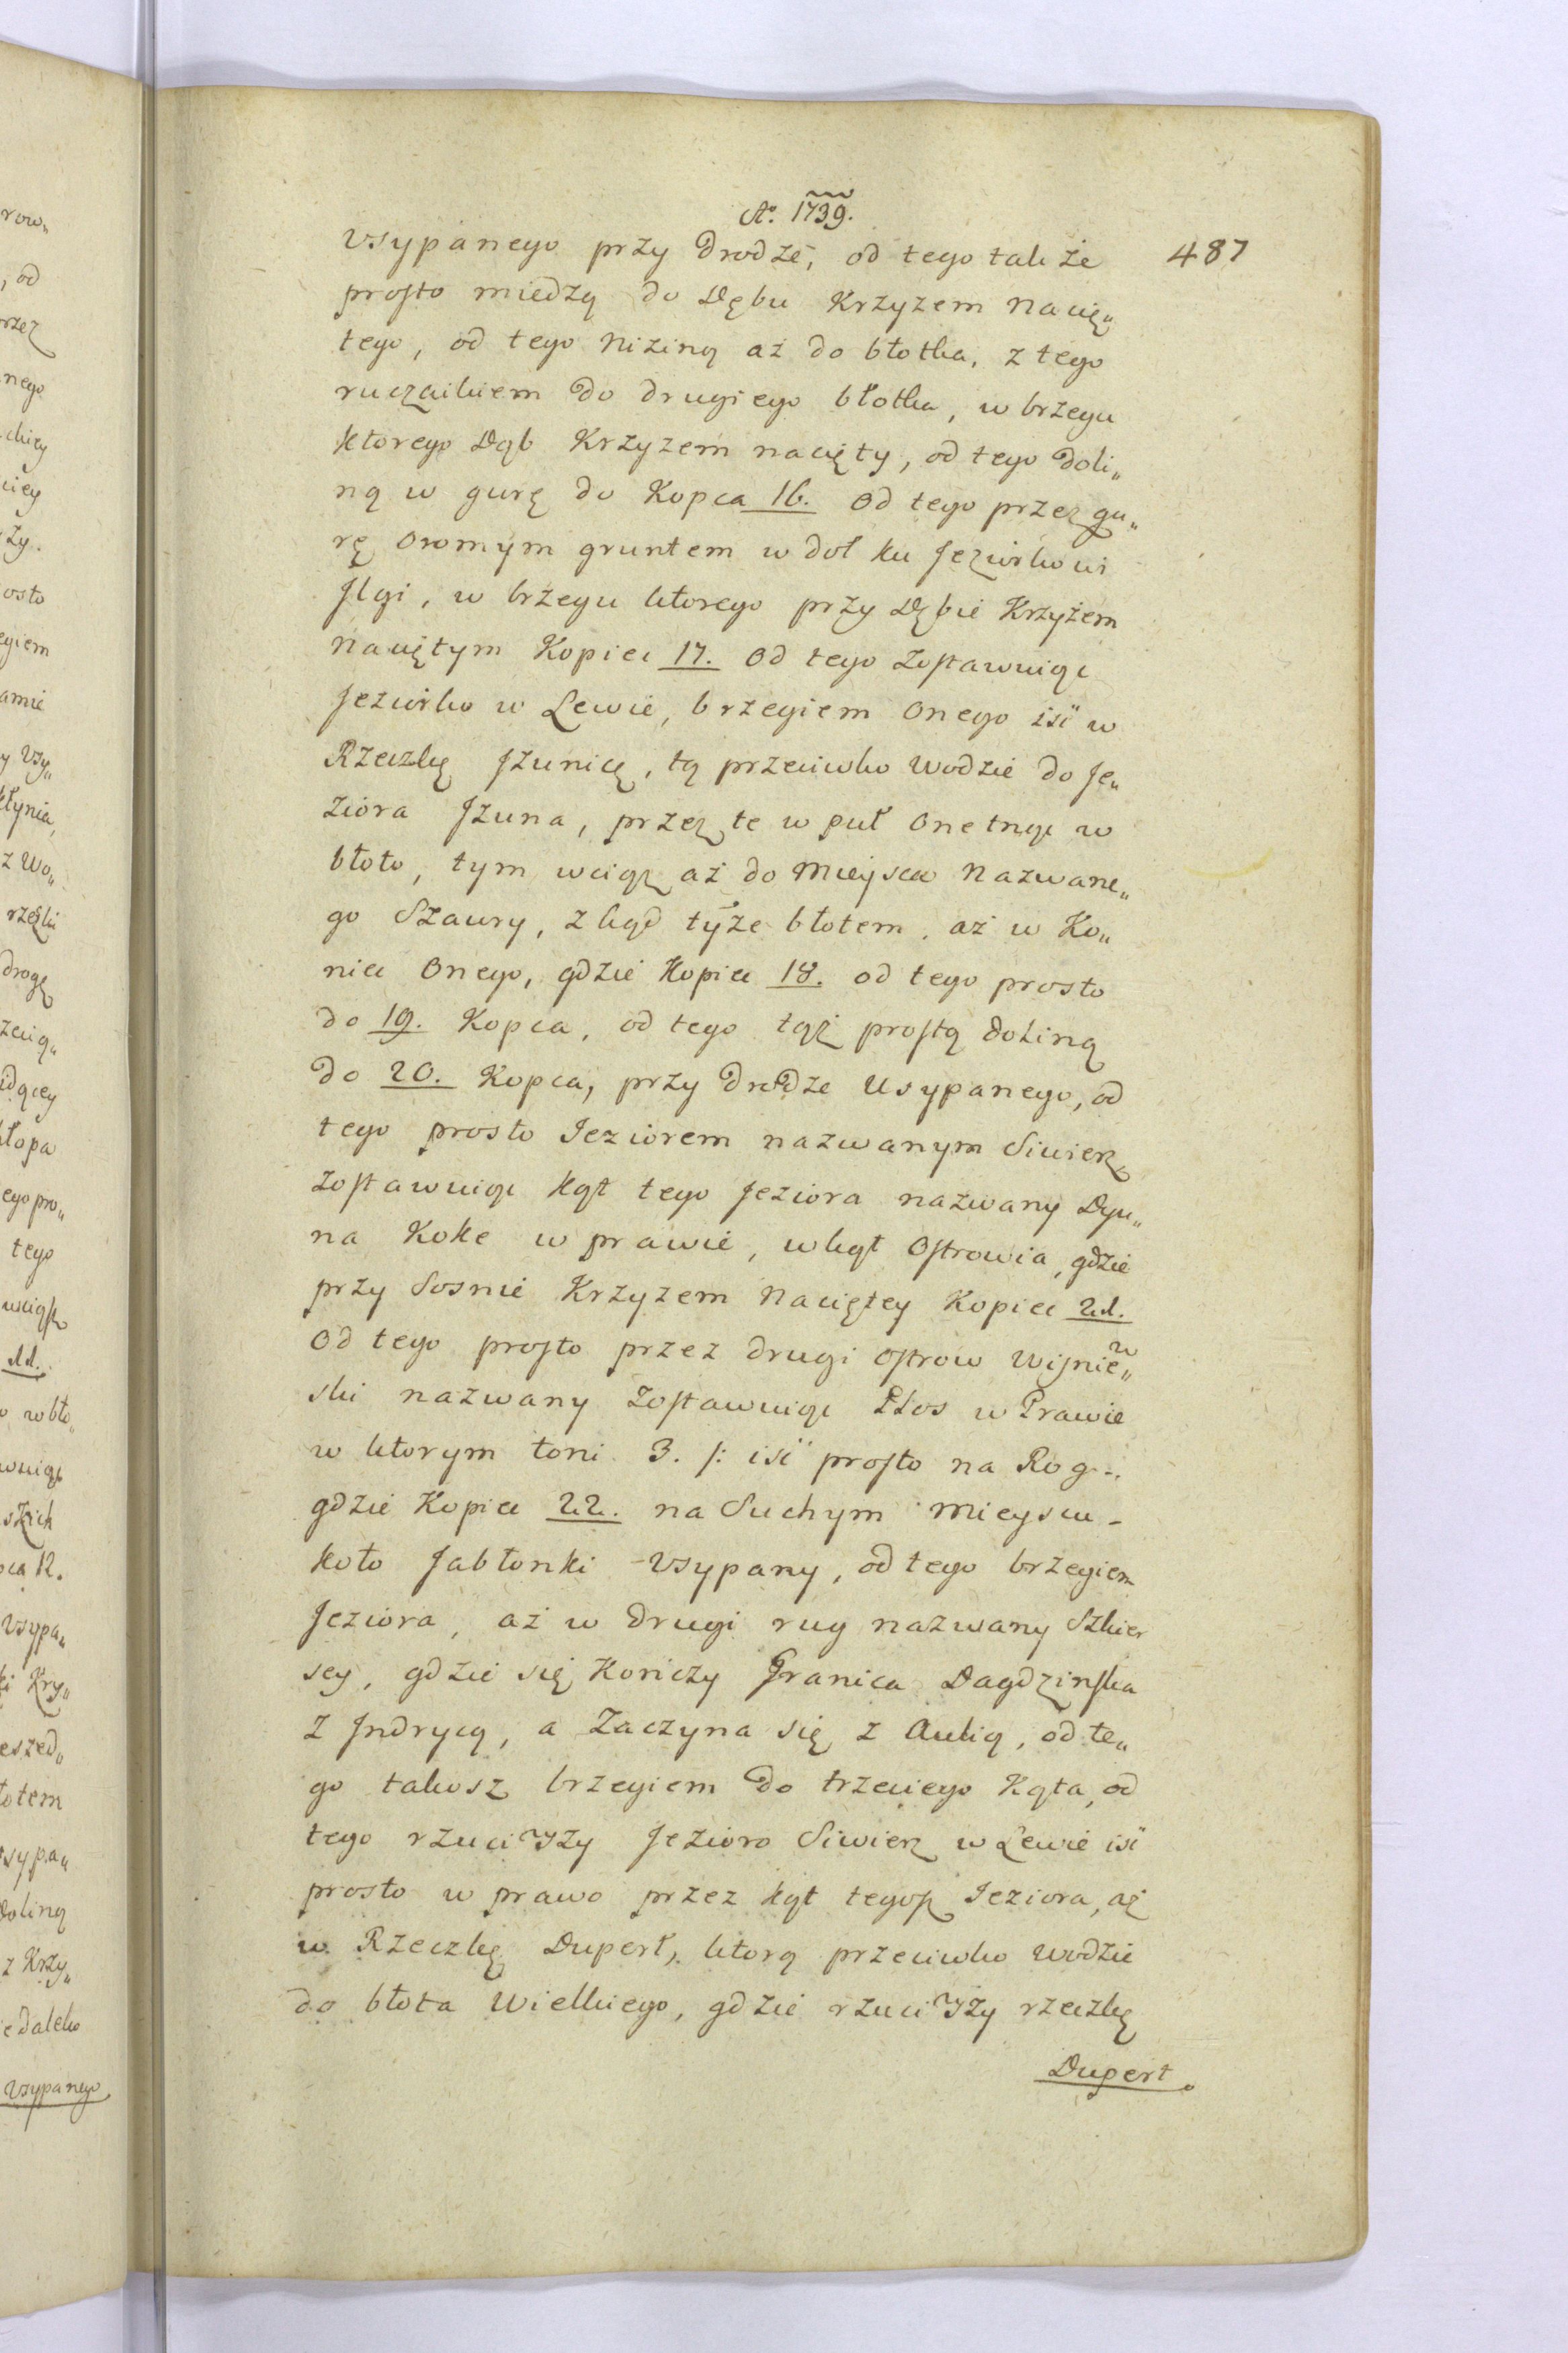 Aº. 1739.
487
Vsypanego przy Drodze, od tego także
prosto miedzą do Dębu Krzyzem Nacię„
tego, od tego Niziną aż do błotka, z tego
ruczaikiem do drugiego błotka, w brzegu
ktorego Dąb Krzyzem nacięty, od tego Doli„
ną w gurę do Kopca 16. Od tego przez gu„
rę Oromym gruntem w doł ku Jeziorkowi
Jlgi, w brzegu ktorego przy Dębie Krzyżem
Naciętym Kopiec 17. Od tego Zostawuiąc
Jeziorko w Lewie, brzegiem Onego iść w
Rzeczkę Jzunicę, tą przeciwko Wodzie do Je„
ziora Jzuna, przez te w puł Onetnąc w
błoto, tym wciąz aż do Mieysca Nazwane„
go Szaury, zkąd tymże błotem, aż w Ko„
niec Onego, gdzie Kopiec 18. od tego prosto
do 19. Kopca, od tego tąż prostą Doliną
do 20. Kopca, przy Drodze Usypanego, od
tego prosto Jeziorem nazwanym Siwierz
Zostawuiąc kąt tego Jeziora nazwany Dyu„
na Koke w prawie, w kąt Ostrowia, gdzie
przy Sosnie Krzyzem Naciętey Kopiec 21.
Od tego prosto przez drugi Ostrow Wisniew„
ski nazwany Zostawuiąc Płos w Prawie
w ktorym toni 3. /: iść prosto na Rog
gdzie Kopiec 22. na Suchym Mieyscu
koło Jabłonki Vsypany, od tego brzegiem
Jeziora, aż w Drugi rug nazwany Szkier
sey, gdzie się Kończy Granica Dagdzinska
z Jndrycą, a Zaczyna się z Aulią, od te„
go takosz brzegiem do trzeciego Kąta, od
tego rzuciwszy Jezioro Siwierz w Lewie iść
prosto w prawo przez kąt tegosz Jeziora, aż
w Rzeczkę Dupert, ktorą przeciwko Wodzie
do błota Wielkiego, gdzie rzuciwszy rzeczkę
Dupert